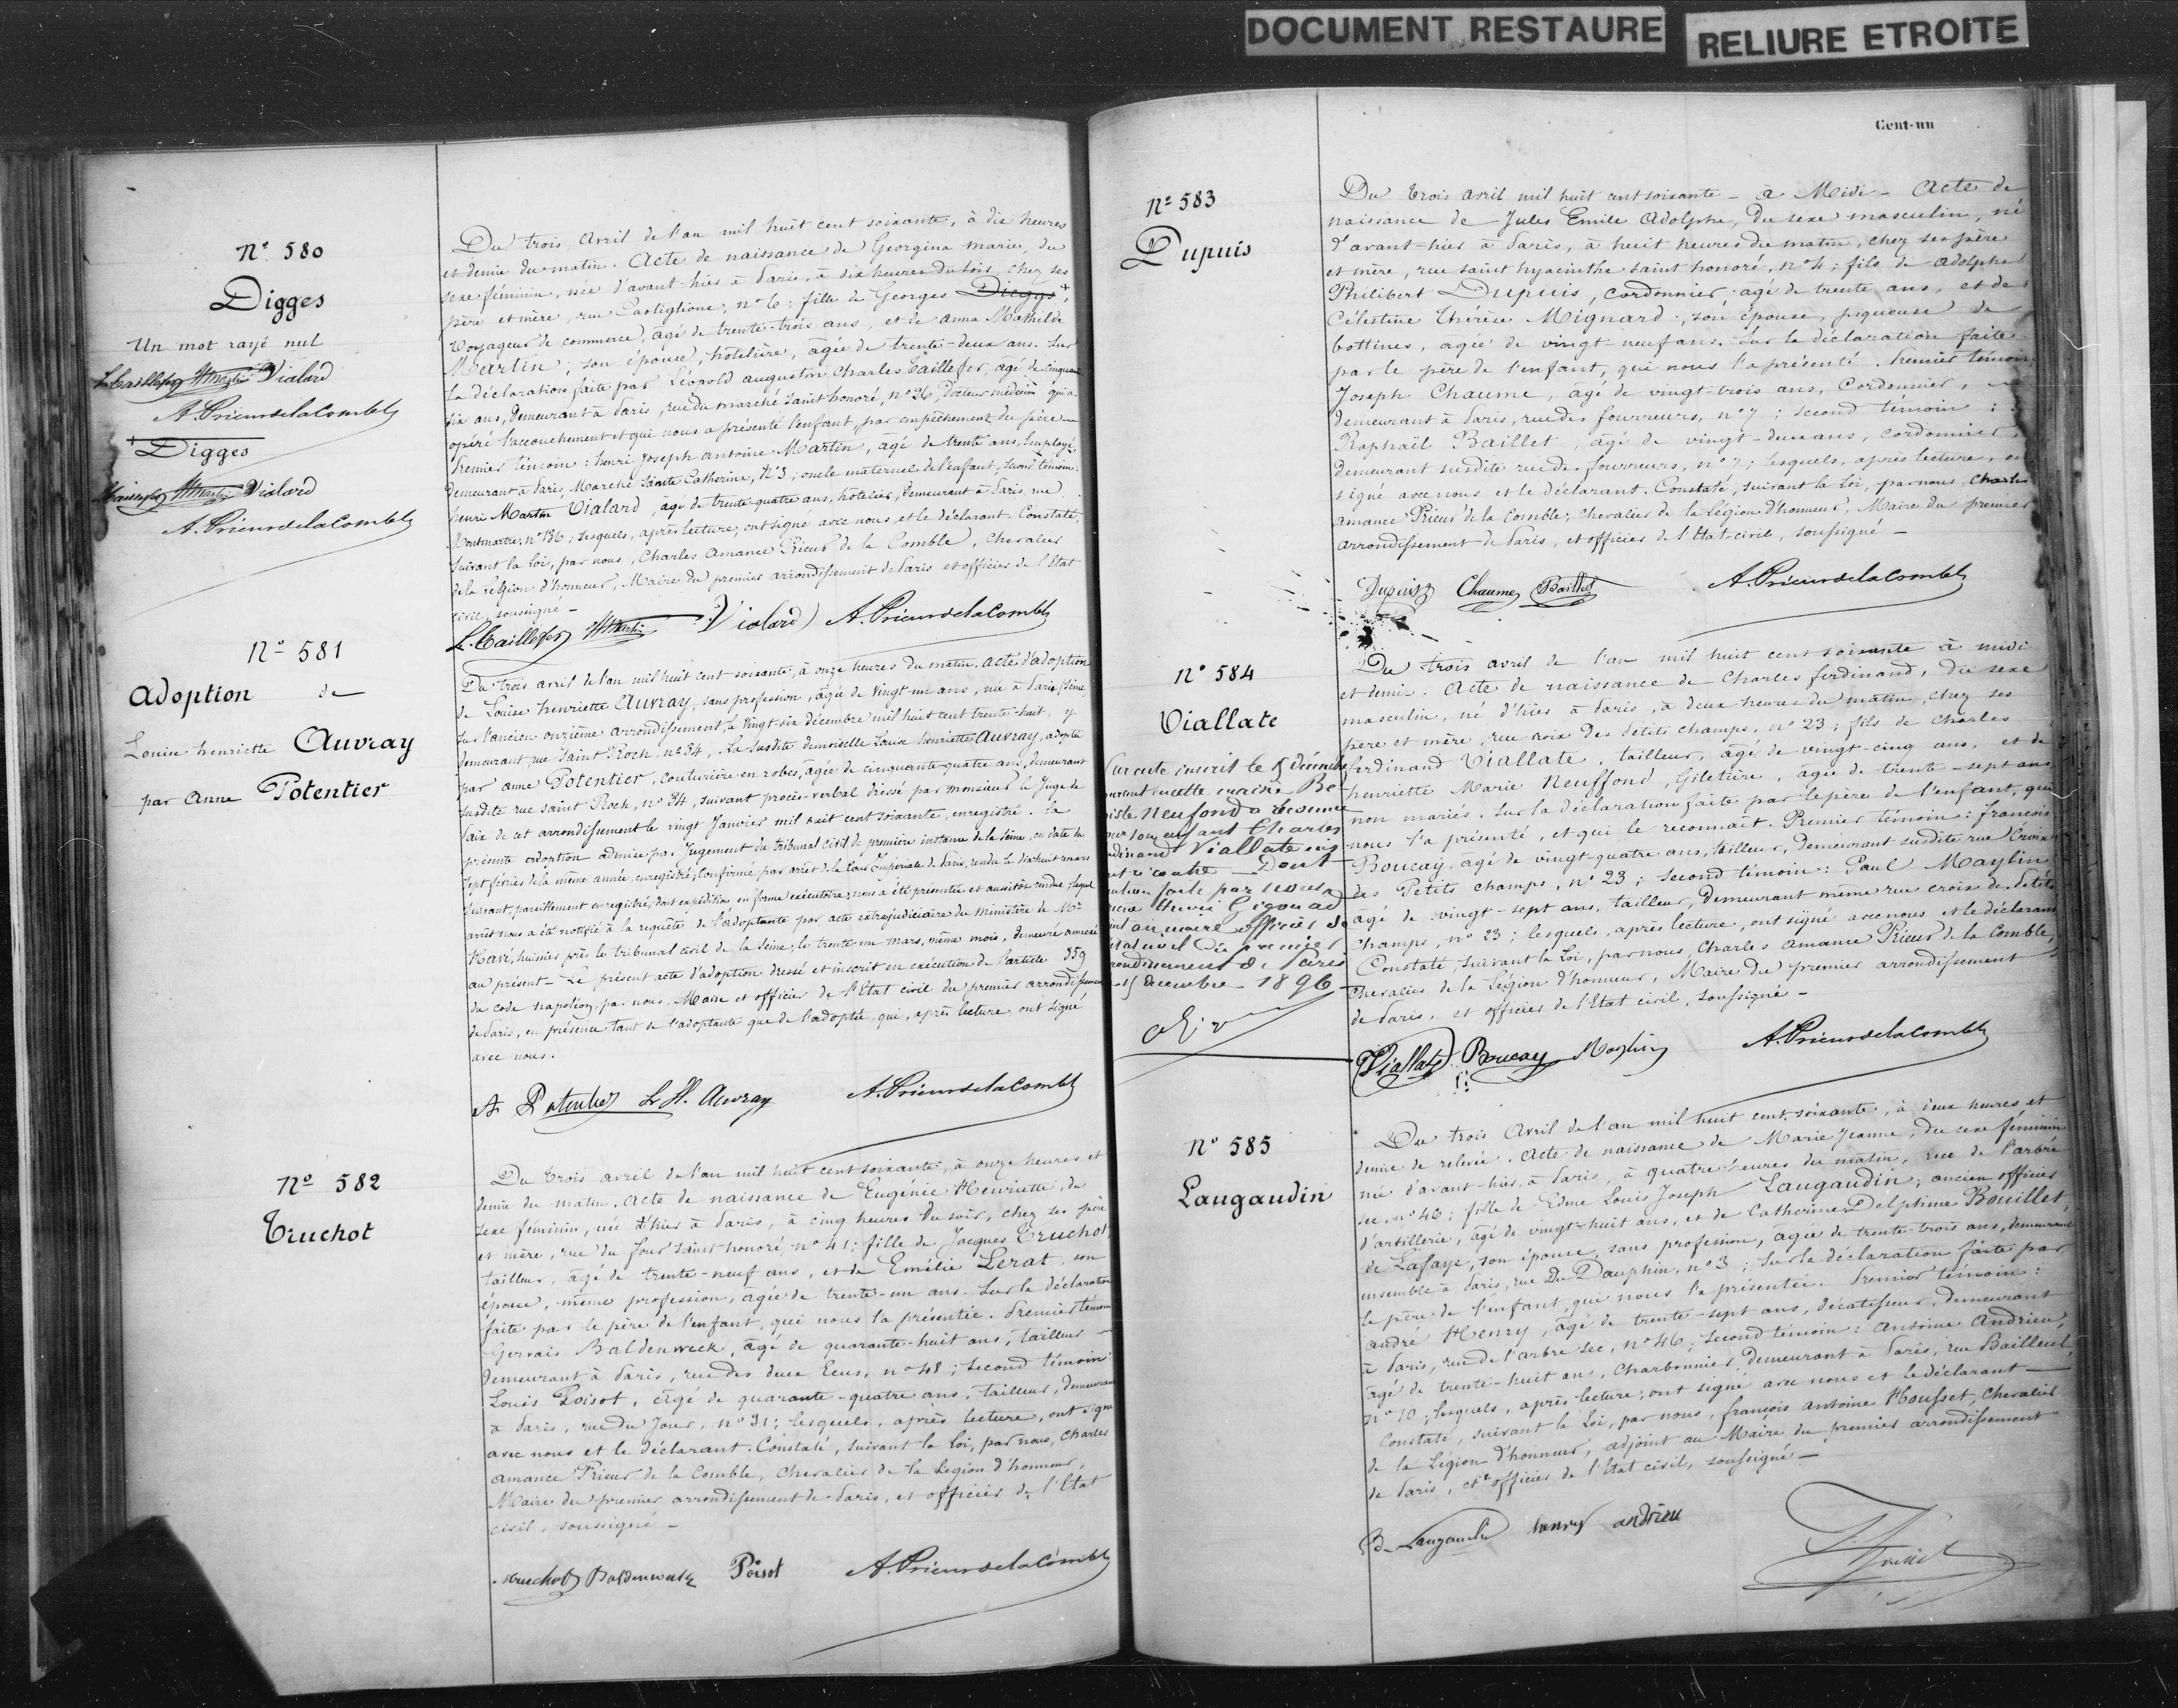 DOCUMENT RESTAURE
RELIURE ETROITE
Nº 580
Digges
Un mot rayé nul
L. Taillefer HMartin Vialard
A. Prieur de la Comble
+ Digges
L. Taillefer HMartin Vialard
A. Prieur de la Comble
Du trois Avril de l'an mil huit cent soixante, à dix heures
et demie du matin. Acte de naissance de Georgina Marie, du
sexe féminin, née d'avant-hier à Paris, à dix heures du soir, chez ses
père et mère, rue Castiglione, nº 6; fille de Georges Dieggs +,
voyageur de commerce, âgé de trente-trois ans, et de Anna Mathilde
Martin; son épouse, hôtelière, âgée de trente-deux ans. Sur
la déclaration faite par Léopold Augustin Charles Taillefer, âgé de cinquante
six ans, demeurant à Paris, rue du marché Saint honoré, nº 26, Docteur médecin qui a
opéré l'accouchement et qui nous a présenté l'enfant, par empêchement du père
Premier témoin: henri Joseph antoine Martin, âgé de trente ans, Employé,
demeurant à Paris, Marché Sainte Catherine, nº 3, oncle maternel de l'enfant, Second témoin:
henri Martin Vialard, âgé de trente-quatre ans, hôtelier, demeurant à Paris, rue
Montmartre, nº 136; lesquels, après lecture, ont signé avec nous et le déclarant. Constaté,
suivant la loi, par nous, Charles Amance Prieur de la Comble, Chevalier
de la Légion d'honneur, Maire du premier arrondissement de Paris et officier de l'Etat
civil, soussigné —
L. Taillefer HMartin Vialard A. Prieur de la Comble
Nº 581
Adoption de
Louise henriette Auvray
par Anne Potentier
Du trois avril de l'an mil huit cent soixante, à onze heures du matin. Acte d'adoption
de Louise henriette Auvray, sans profession, âgée de vingt-un ans, née à Paris (Seine
sur l'ancien onzième arrondissement, le vingt-six décembre mil huit cent trente-huit, y
demeurant, rue Saint Roch, nº 34, la susdite demoiselle Louise henriette Auvray, adoptée
par anne Potentier, couturière en robes, âgée de cinquante-quatre ans, demeurant
susdite rue saint Roch, nº 34, suivant procès-verbal dressé par monsieur le Juge de
Paix de cet arrondissement le vingt Janvier mil huit cent soixante, enregistré. la
présente adoption admise par Jugement du tribunal civil de première instance de la Seine, en date du
sept février de la même année, enregistré, Confirmé par arrêt de la Cour Impériale de Paris, rendu le dix-huit mars
suivant, pareillement enregistré, dont expédition, en forme exécutoire, nous a été présentée et aussitôt rendue, lequel
arrêt nous a été notifié à la requête de l'adoptante par acte extrajudiciaire du ministère de Mr
Havé, huissier près le tribunal civil de la Seine, le trente-un mars, même mois, demeuré annexé
au présent — Le présent acte d'adoption dressé et inscrit en exécution de l'article 359
du code napoléon, par nous, Maire et officier de l'Etat civil du premier arrondissement
de Paris, en présence tant de l'adoptante que de l'adoptée, qui, après lecture, ont signé
avec nous.
A Potentier L. H. Auvray A. Prieur de la Comble
Nº 582
Truchot
Du trois avril de l'an mil huit cent soixante, à onze heures et
demie du matin. Acte de naissance de Eugénie Henriette, du
sexe féminin, née d'hier à Paris, à cinq heures du soir, chez ses père
et mère, rue du four saint honoré, nº 41; fille de Jacques Truchot,
tailleur, âgé de trente-neuf ans, et de Emélie Lerat, son
épouse, même profession, âgée de trente-un ans. Sur la déclaration
faite par le père de l'enfant, qui nous l'a présentée. Premier témoin
Gervais Baldenweck, âgé de quarante-huit ans, tailleur
demeurant à Paris, rue des deux Ecus, nº 48; second témoin:
Louis Poisot, âgé de quarante-quatre ans, tailleur, demeurant
à Paris, rue du Jour, nº 31; lesquels, après lecture, ont signé
avec nous et le déclarant. Constaté, suivant la loi, par nous, Charles
Amance Prieur de la Comble, Chevalier de la Légion d'honneur,
Maire du premier arrondissement de Paris, et officier de l'Etat
civil, soussigné —
Truchot Baldenweck Poisot A. Prieur de la Comble
Cent-un
Nº 583
Dupuis
Du trois avril mil huit cent soixante — à Midi — Acte de
naissance de Jules Emile Adolphe, du sexe masculin, né
d'avant-hier à Paris, à huit heures du matin, chez ses père
et mère, rue saint hyacinthe saint honoré, nº 4; fils de Adolphe
Philibert Dupuis, cordonnier, âgé de trente ans, et de
Célestine thérèse Mignard, son épouse, piqueuse de
bottines, âgée de vingt-neuf ans. Sur la déclaration faite
par le père de l'enfant, qui nous l'a présenté. Premier témoin:
Joseph Chaume, âgé de vingt-trois ans, Cordonnier,
demeurant à Paris, rue des fourreurs, nº 7; second témoin:
Raphaël Baillet, âgé de vingt-deux ans, cordonnier,
demeurant susdite rue des fourreurs, nº 7; lesquels, après lecture, ont
signé avec nous et le déclarant. Constaté, suivant la loi, par nous, Charles
Amance Prieur de la Comble, Chevalier de la Légion d'honneur, Maire du premier
arrondissement de Paris, et officier de l'Etat-civil, soussigné —
Dupuis Chaume Baillet A. Prieur de la Comble
Nº 584
Viallate
Par acte inscrit le 15 décembre
courant en cette mairie
Neufond a reconnu
pour son enfant Charles
Ferdinand Viallate
ci contre — Dont
mention faite par nous
Henri
adjoint au maire officier de
l'état civil du premier
arrondissement de Paris
15 décembre 1896
Du trois avril de l'an mil huit cent soixante à midi
et demie. Acte de naissance de Charles ferdinand, du sexe
masculin, né d'hier à Paris, à deux heures du matin, chez ses
père et mère, rue croix des Petits champs, nº 23; fils de Charles
ferdinand Viallate, tailleur, âgé de vingt-cinq ans, et de
henriette Marie Neuffond, Giletière, âgée de trente-sept ans
non mariés. Sur la déclaration faite par le père de l'enfant, qui
nous l'a présenté, et qui le reconnaît. Premier témoin: françois
Boucay, âgé de vingt-quatre ans, tailleur, demeurant susdite rue Croix
des Petits champs, nº 23; Second témoin: Paul Maylin
âgé de vingt-sept ans, tailleur, demeurant même rue croix des Petits
Champs, nº 23; lesquels, après lecture, ont signé avec nous et le déclarant
Constaté, suivant la Loi, par nous, Charles Amance Prieur de la Comble,
Chevalier de la Légion d'honneur, Maire du premier arrondissement
de Paris, et officier de l'Etat civil, soussigné —
Viallate Boucay Maylin A. Prieur de la Comble
Nº 585
Laugaudin
Du trois Avril de l'an mil huit cent soixante, à deux heures et
demie de relevée. Acte de naissance de Marie Jeanne, du sexe féminin
née d'avant-hier à Paris, à quatre heures du matin, rue de l'arbre
sec, nº 46; fille de Edme Louis Joseph Laugaudin, ancien officier
d'artillerie, âgé de vingt-huit ans, et de Catherine Delphine Bouillet
de Lafaye, son épouse, sans profession, âgée de trente-trois ans, demeurant
ensemble à Paris, rue Du Dauphin, nº 3; Sur la déclaration faite par
le père de l'enfant, qui nous l'a présentée. Premier témoin:
andré Henry, âgé de trente-sept ans, décatisseur, demeurant
à Paris, rue de l'arbre sec, nº 46; second témoin: Antoine Andrieu,
âgé de trente-huit ans, Charbonnier, demeurant à Paris, rue Bailleul,
nº 10; lesquels, après lecture, ont signé avec nous et le déclarant —
Constaté, suivant la Loi, par nous, françois Antoine Housset, Chevalier
de la Légion d'honneur, adjoint au Maire du premier arrondissement
de Paris, et officier de l'Etat civil, soussigné —
Laugaudin henry andrieu